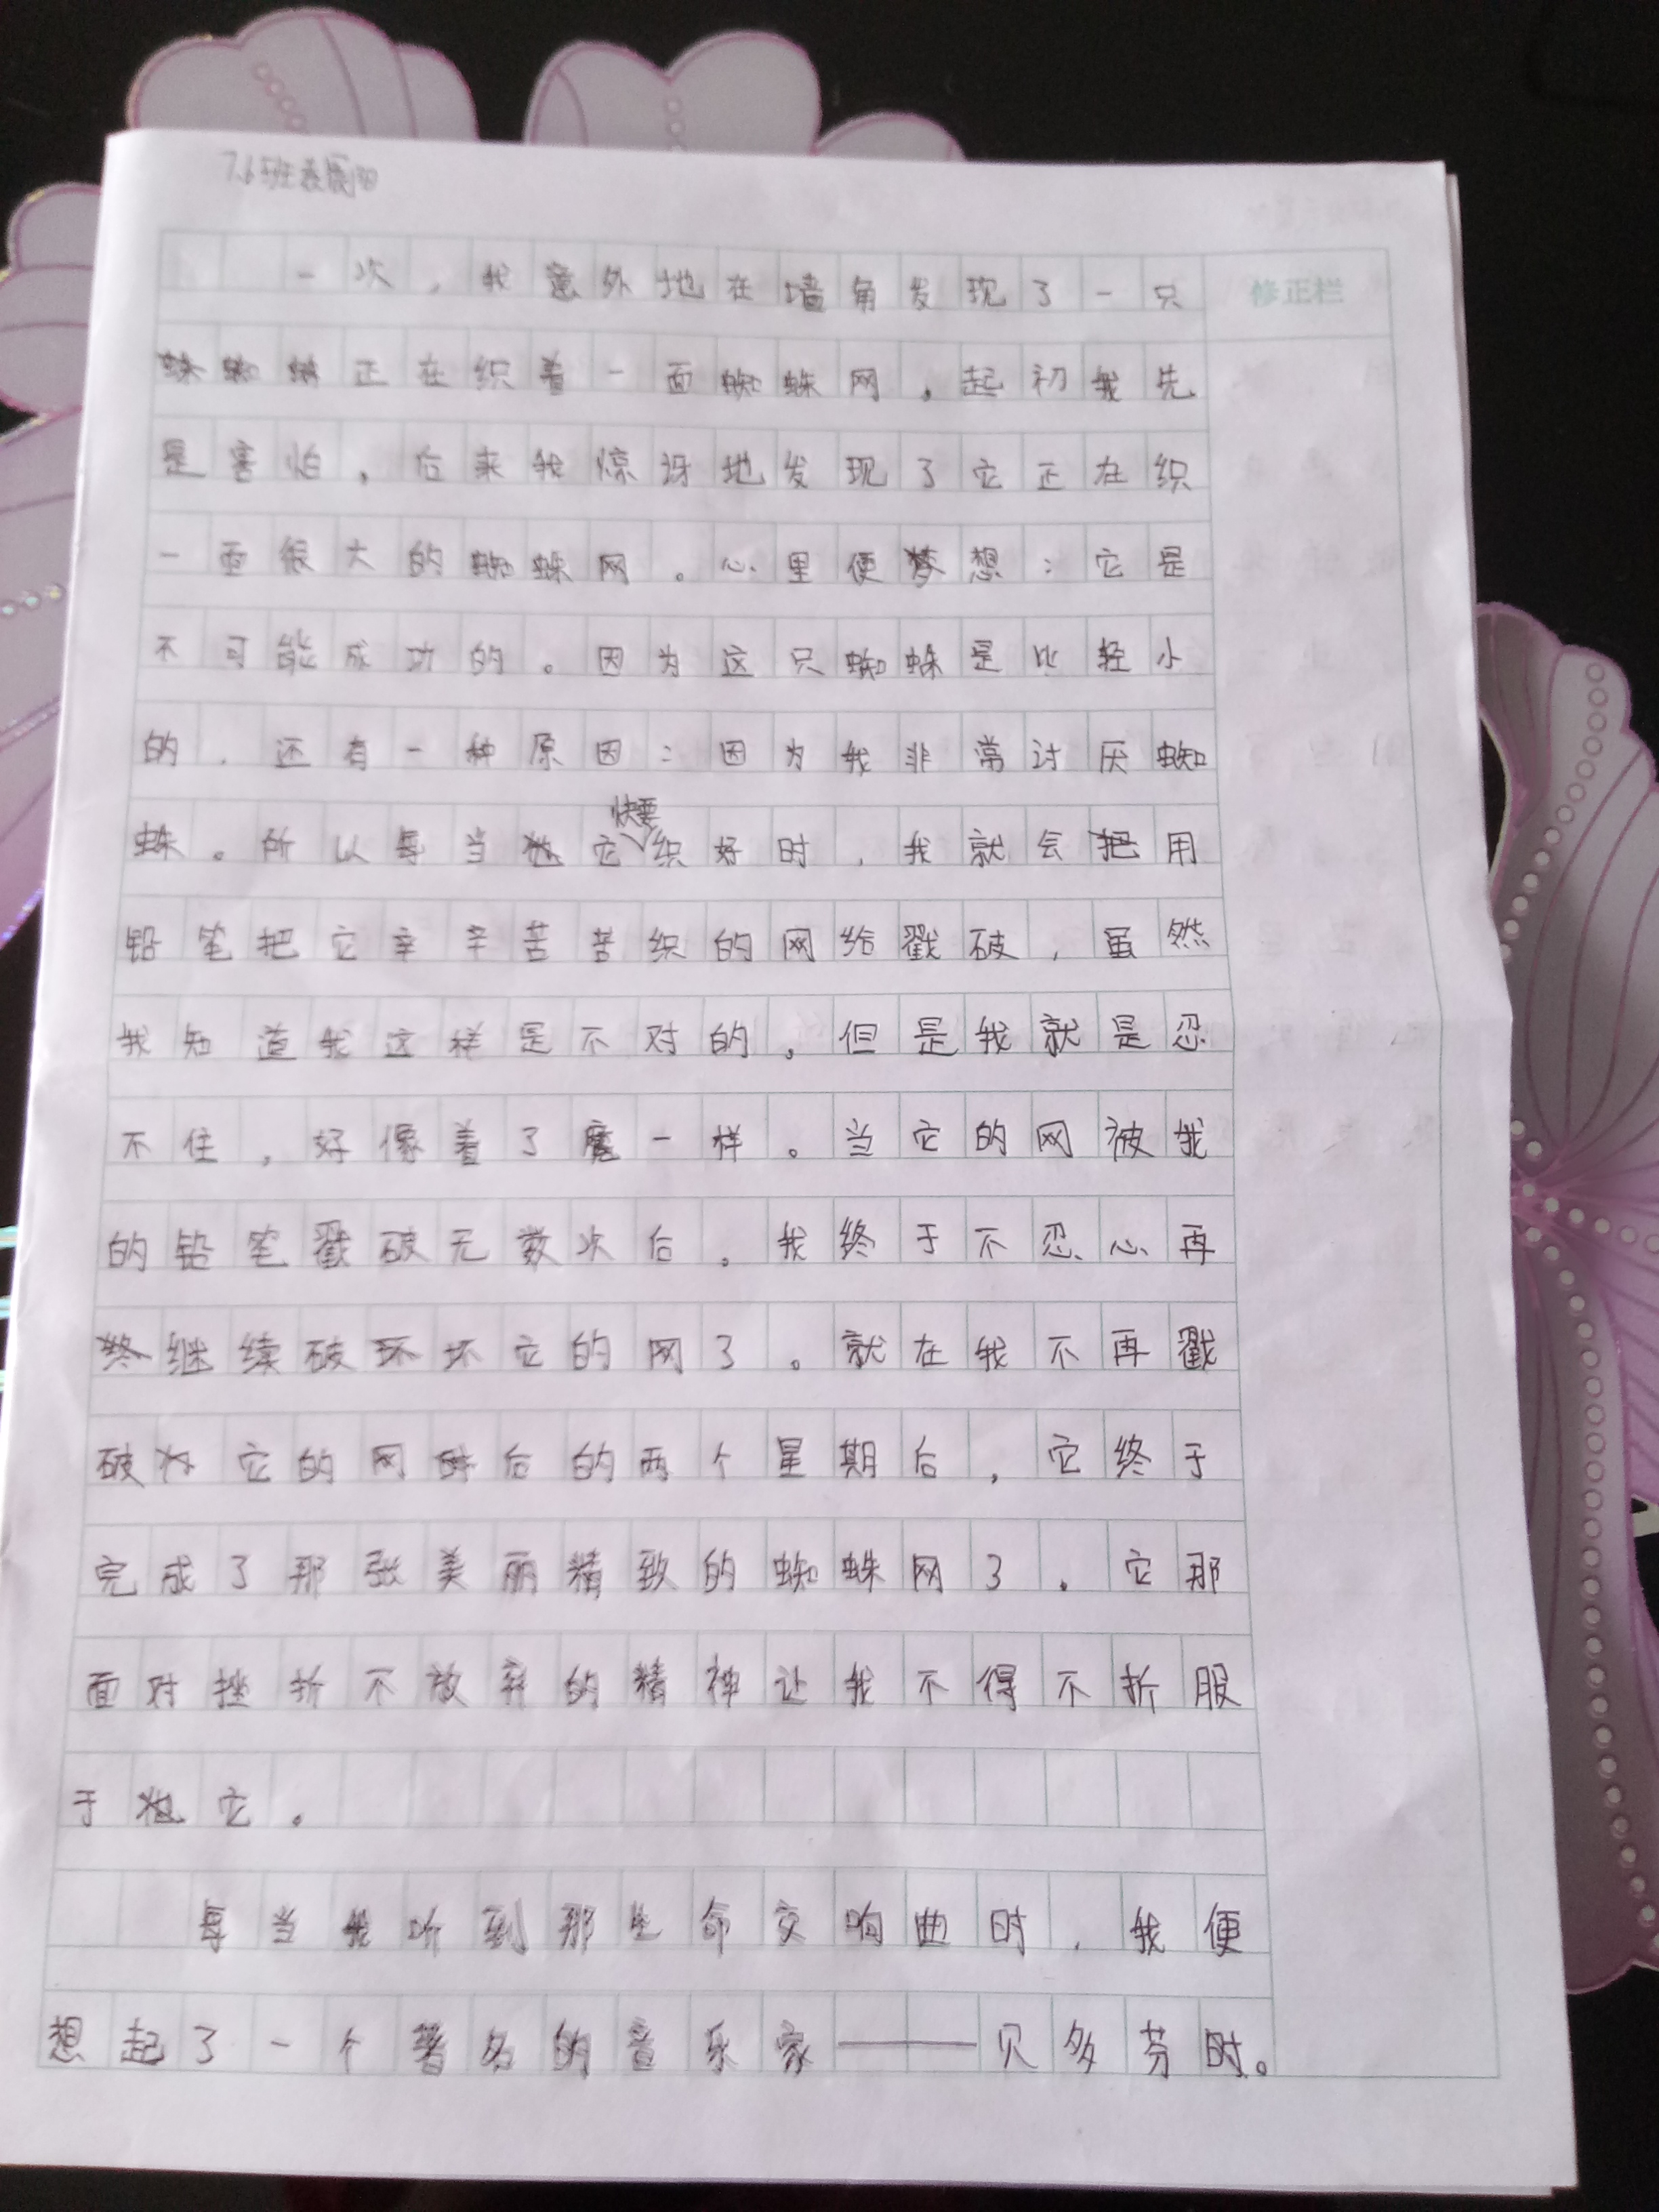 7.6班
一次，我意外地在墙角发现了一只
修正栏
蛛蜘蛛正在织着一面蜘蛛网。起初我先
是害怕，后来我惊讶地发现了它正在织
一面很大的蜘蛛网。心里便梦想：它是
不可能成功的。因为这只蜘蛛是比轻小
的，还有一种原因：因为我非常讨厌蜘
蛛。所以每当他它快要织好时，我就会把用
铅笔把它辛辛苦苦织的网给戳破，虽然
我知道我这样是不对的，但是我就是忍
不住，好像着了魔一样。当它的网被我
的铅笔戳破无数次后。我终于不忍心再
终继续破环坏它的网了。就在我不再戳
破它的网后的两个星期后，它终于
完成了那张美丽精致的蜘蛛网了。它那
面对挫折不放弃的精神让我不得不折服
于他它。
每当我听到那生命交响曲时，我便
想起了一个著名的音乐家——贝多芬时。